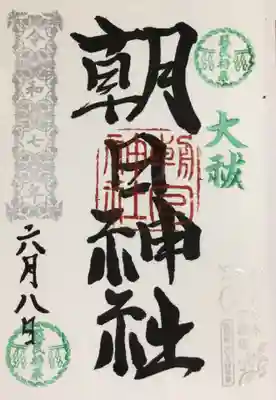 大祓
朝日神社
朝日神社
令和七年
六月八日